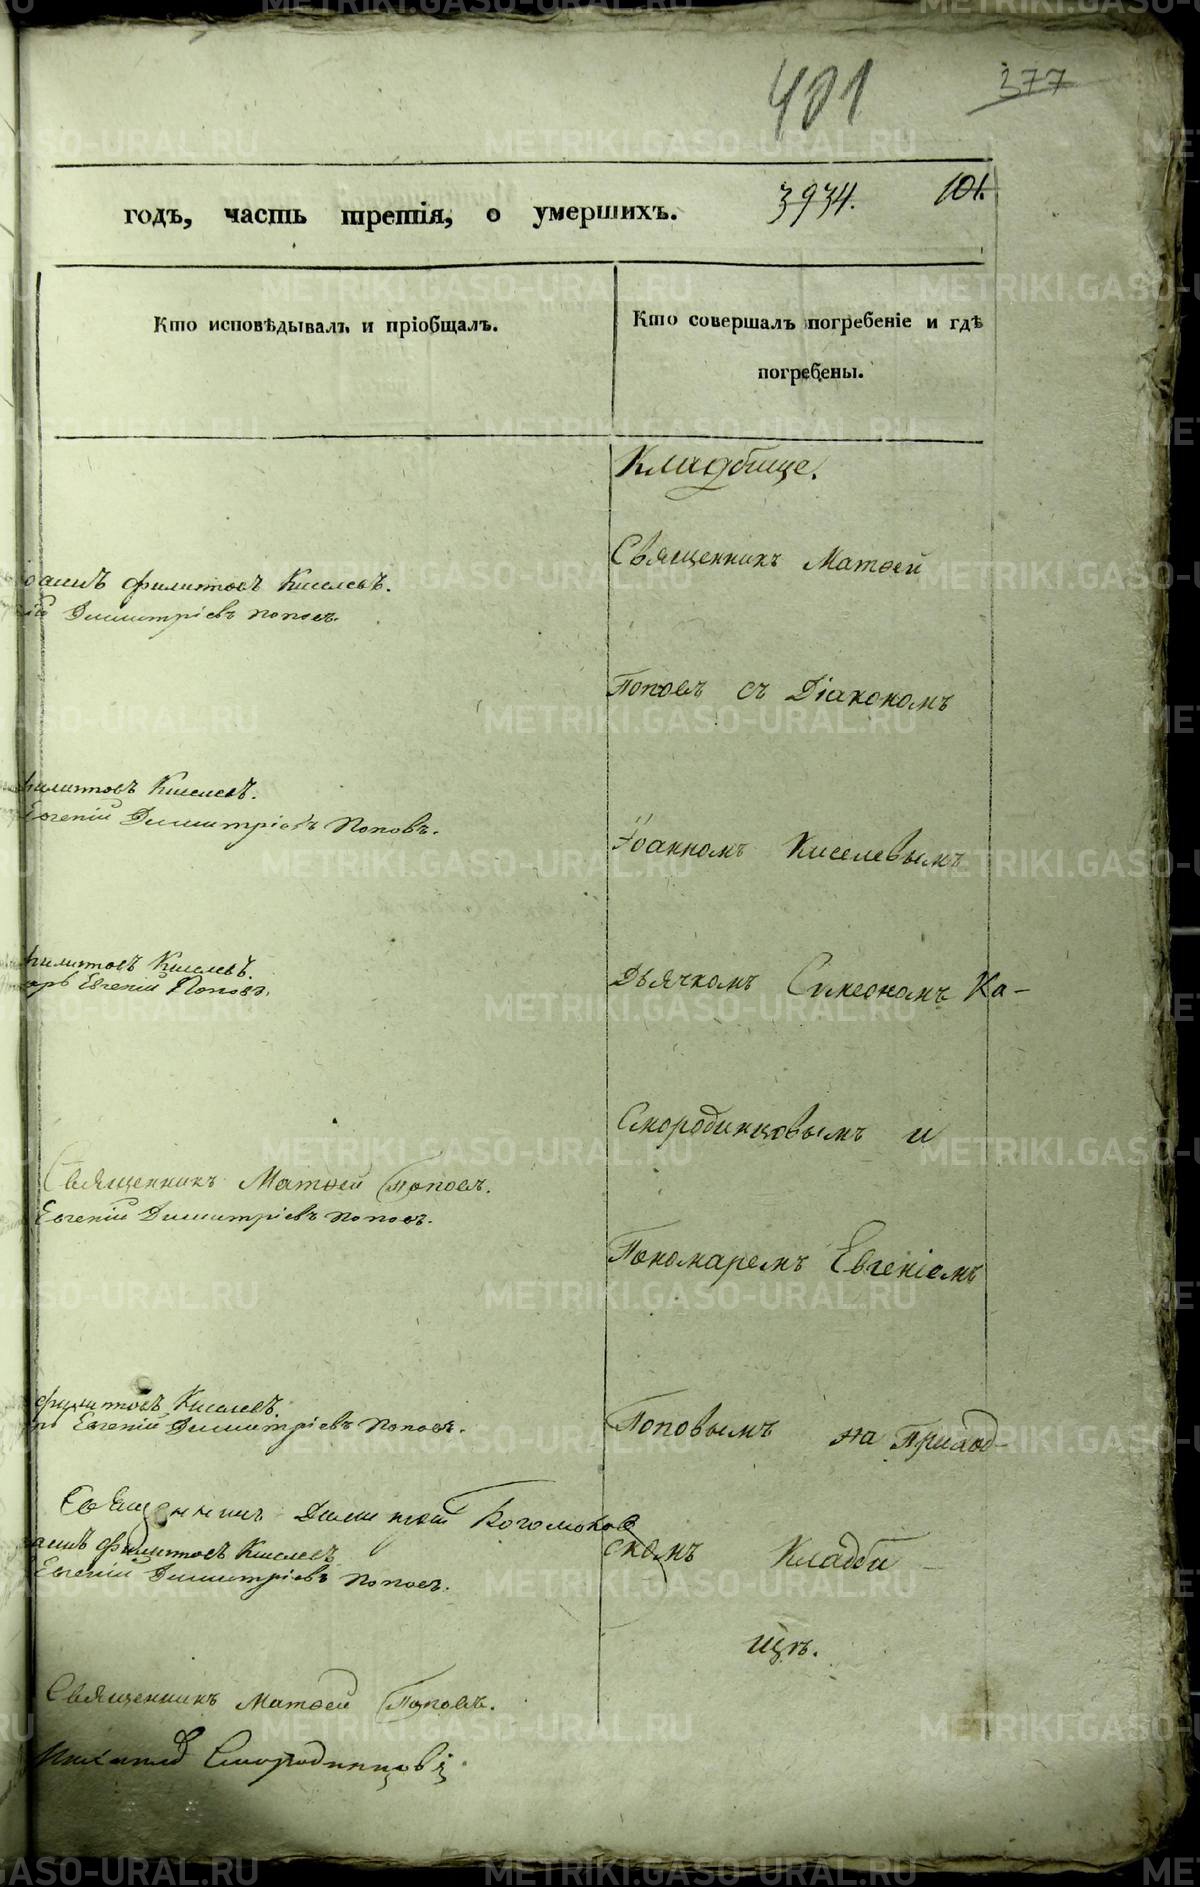 401
377
годъ, часть третія, о умершихъ.
3934.
101.
Кто исповѣдывалъ и пріобщалъ.
Кто совершалъ погребеніе и гдѣ
погребены.
Кладбище.
Священникъ Матѳей
Филитовъ Киселевъ.
Димитріевъ Поповъ.
Поповъ съ Діакономъ
Филитовъ Киселевъ.
Евгеній Димитріевъ Поповъ.
Іоанномъ Киселевымъ
Филитовъ Киселевъ.
Евгеній Поповъ.
Дьячкомъ Симеономъ Ка-
Смородинцовымъ и
Священникъ Матѳей Поповъ.
Евгеній Димитріевъ Поповъ.
Пономаремъ Евгеніемъ
Филитовъ Киселевъ.
Евгеній Димитріевъ Поповъ.
Поповымъ на Приход-
Священникъ Димитрій
Филитовъ Киселевъ
скомъ Кладби-
Евгеній Димитріевъ Поповъ.
щѣ.
Священникъ Матѳей Поповъ.
Смородинцовъ
METRIKI.GASO-URAL.RU